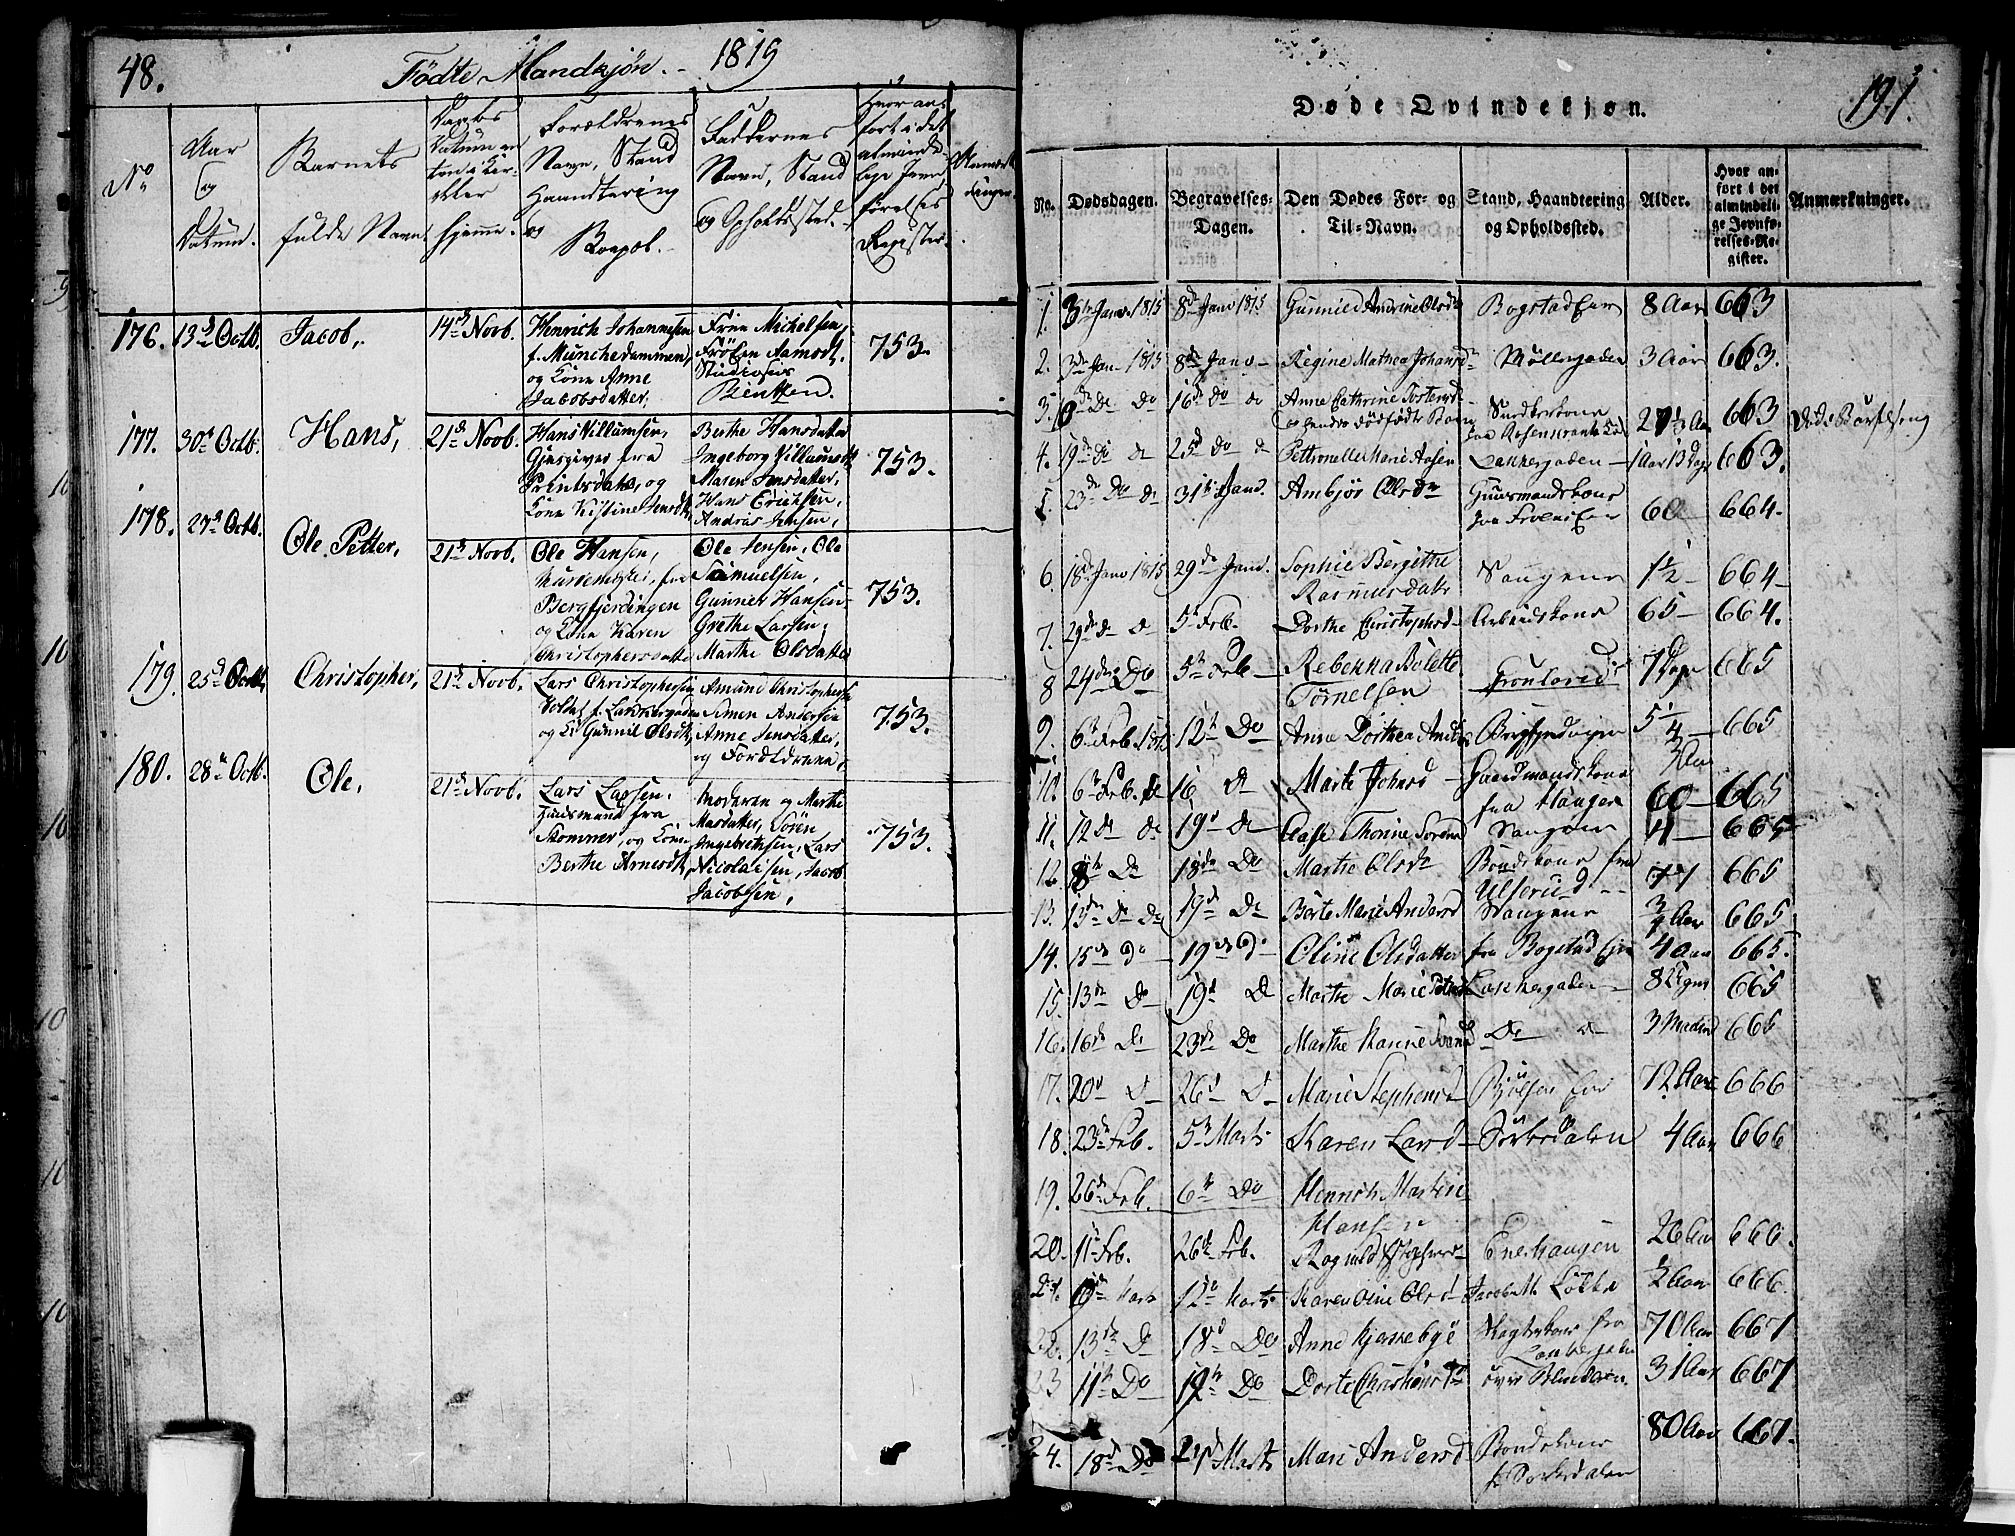 48.
Födte Mandkjön. - 1819
No
Aar
og
Datum.
Barnets
fulde Navn.
Daabs
Datum en
ten i Kir-
ken eller
hjemme.
Forældrenes
Navn, Stand
Haandtering
og
Boepæl.
Faddernes
Navn, Stand
og Opholdssted.
Hvor an-
fört i det
alminde-
lige Jevn
förelses
Register.
Anmærk
ninger.
176. 13d Octb. Jacob, 14d Novb.
Henrich Johannesen
f. Munchedammen,
og Kone Anne
Jacobsdatter.
Frue Michelsen,
Fröken Aamodt,
Studiosus
Bentzen.
753.
177. 30t Octb. Hans, 21d Novb.
Hans Villumsen,
Gjæsgiver fra
Printsdahl, og
Kone Kistine Jensdtr,
Berthe Hansdatter
Ingeborg Villumsdtr,
Maren Jensdatter,
Hans Erichsen,
Andrias Jensen,
753.
178. 27d Octb. Ole Petter, 21d Novb.
Ole Hansen,
fra
Bergfjerdingen
og Kone Karen
Christophersdatter
Ole Jensen, Ole
Samuelsen,
Gunner Hansen
Grethe Larsen,
Marthe Olsdatter
753.
179. 25d Octb. Christopher, 21d Novb.
Lars Christophersen
Soldat f. Lakkergaden
og K. Gunnil Olsdtr,
Amund Christophersen
Simen Andersen
Anne Jensdatter,
og Forældrene,
753.
180. 28d Octb. Ole, 21d Novb.
Lars Larsen,
Huusmand fra
Skommer, og Kone
Berthe Arnesdtr,
Moderen og Marthe
Masdatter, Sören
Ingebrethsen, Lars
Nicolaisen, Jacob
Jacobsen,
753.
191.
Døde Qvindekjøn.
No.
Dødsdagen.
Begravelses-
Dagen.
Den Dødes For- og
Til-Navn.
Stand, Haandtering
og Opholdssted.
Alder.
Hvor an-
ført i det
almindeli-
ge Jevnfø-
relses-Re-
gister.
Anmærkninger.
1. 3de Janv. 1815 8de Janv 1815 Gunnild Amrine Olsdtr Bogstad Eier 8 Aar 663
2. 3de Jan 1815 8de Janv Regine Mathea Johansd Möllergaden 3 Aar 663.
3. 8de Do Do 16de Do Do Anne Cathrine Torstensd
og hendes dödfödte Barn
Snedkerkone
fra Rosenkrantz
27 1/2 Aar 663 Döde i Barselseng
4. 19de Do D 25d Do D Pettronelle Marie Aasen Lakkergaden 1 Aar 13 Dage 663.
5. 23de Do D 31te Jand. Ambjör Olsdtr Huusmandskone
fra Froen Eier
60 664
6. 18d Janv 1815 29de Jand. Sophie Bergithe
Rasmusdatr
Vaugene 1 1/2 664
7. 29de D D 5t Feb. Dorthe Christophsd Arbeidskone 65 664.
8 24de Do 5te Feb Rebekka Bolette
Törnelsen
Grönlered 7 Dage 665
9. 6te Feb. 1815 12te Do Anne Dorthea Andersd Bergfjerdingen 5 1/4 665
10. 6te Feb. D 16 D Marte Johansd Gaardmandskone
fra Haugen
60 665
11. 12 D D 19d D Aase Thorine Sorensd Vaugene 4 665
12. 8te D 18de Do Marthe Olsdtr Bondekone fra
Ulserud
77 665
13. 13de D Do 19d D Berte Marie Andersd Vaugene 3/4 Aar 665
14. 15de Do 19de Do Oline Olsdatter fra Bogstad Eje 4 Aar 665.
15. 13de Do 19d D Marthe Marie Petersd Lakkergaden 8 Uger 665
16. 16de D 23de Do Marthe Karine Svend Do D 3 Maaned 665
17. 20d D 26d D Marie Stephensd Bjölsen Eier 72 Aar 666
18. 23de Feb. 5te Marts Karen Larsd Sörkedalen 4 Aar 666
19. 26de Feb. 6te Do Hennich Martin
Hansen
20. 11te Feb. 26de Feb. Ragnild Enerhaugen 26 Aar 666.
21. Mars 12te Marts Karen Oline Olsd Jacob M. Lökke 1/2 Aar 666.
22. 13de D 18de Do Anne Kjerrebye Vægterkone fra
Lakkegaden
70 Aar 667
23 11te Do 19te Do Dorte Christiansd over Blindern. 31 Aar 667
24. 18d Do 21d Marts Mari Andersd Bondekone
f. Sorkedalen
80 Aar 667.